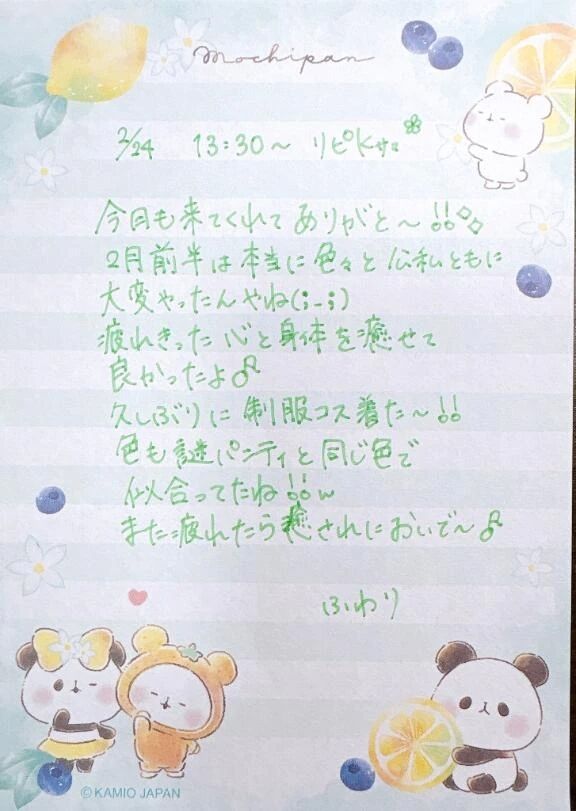 mochipan
2/24 13:30～ リピKさま
今日も来てくれてありがと～!!
2月前半は本当に色々と公私ともに
大変やったんやね(;_;)
疲れきった心と身体を癒せて
良かったよ♫
久しぶりに制服コス着た～!!
色も謎パンティと同じ色で
似合ってたね!!w
また疲れたら癒されにおいで～♪
ふわり
©KAMIO JAPAN